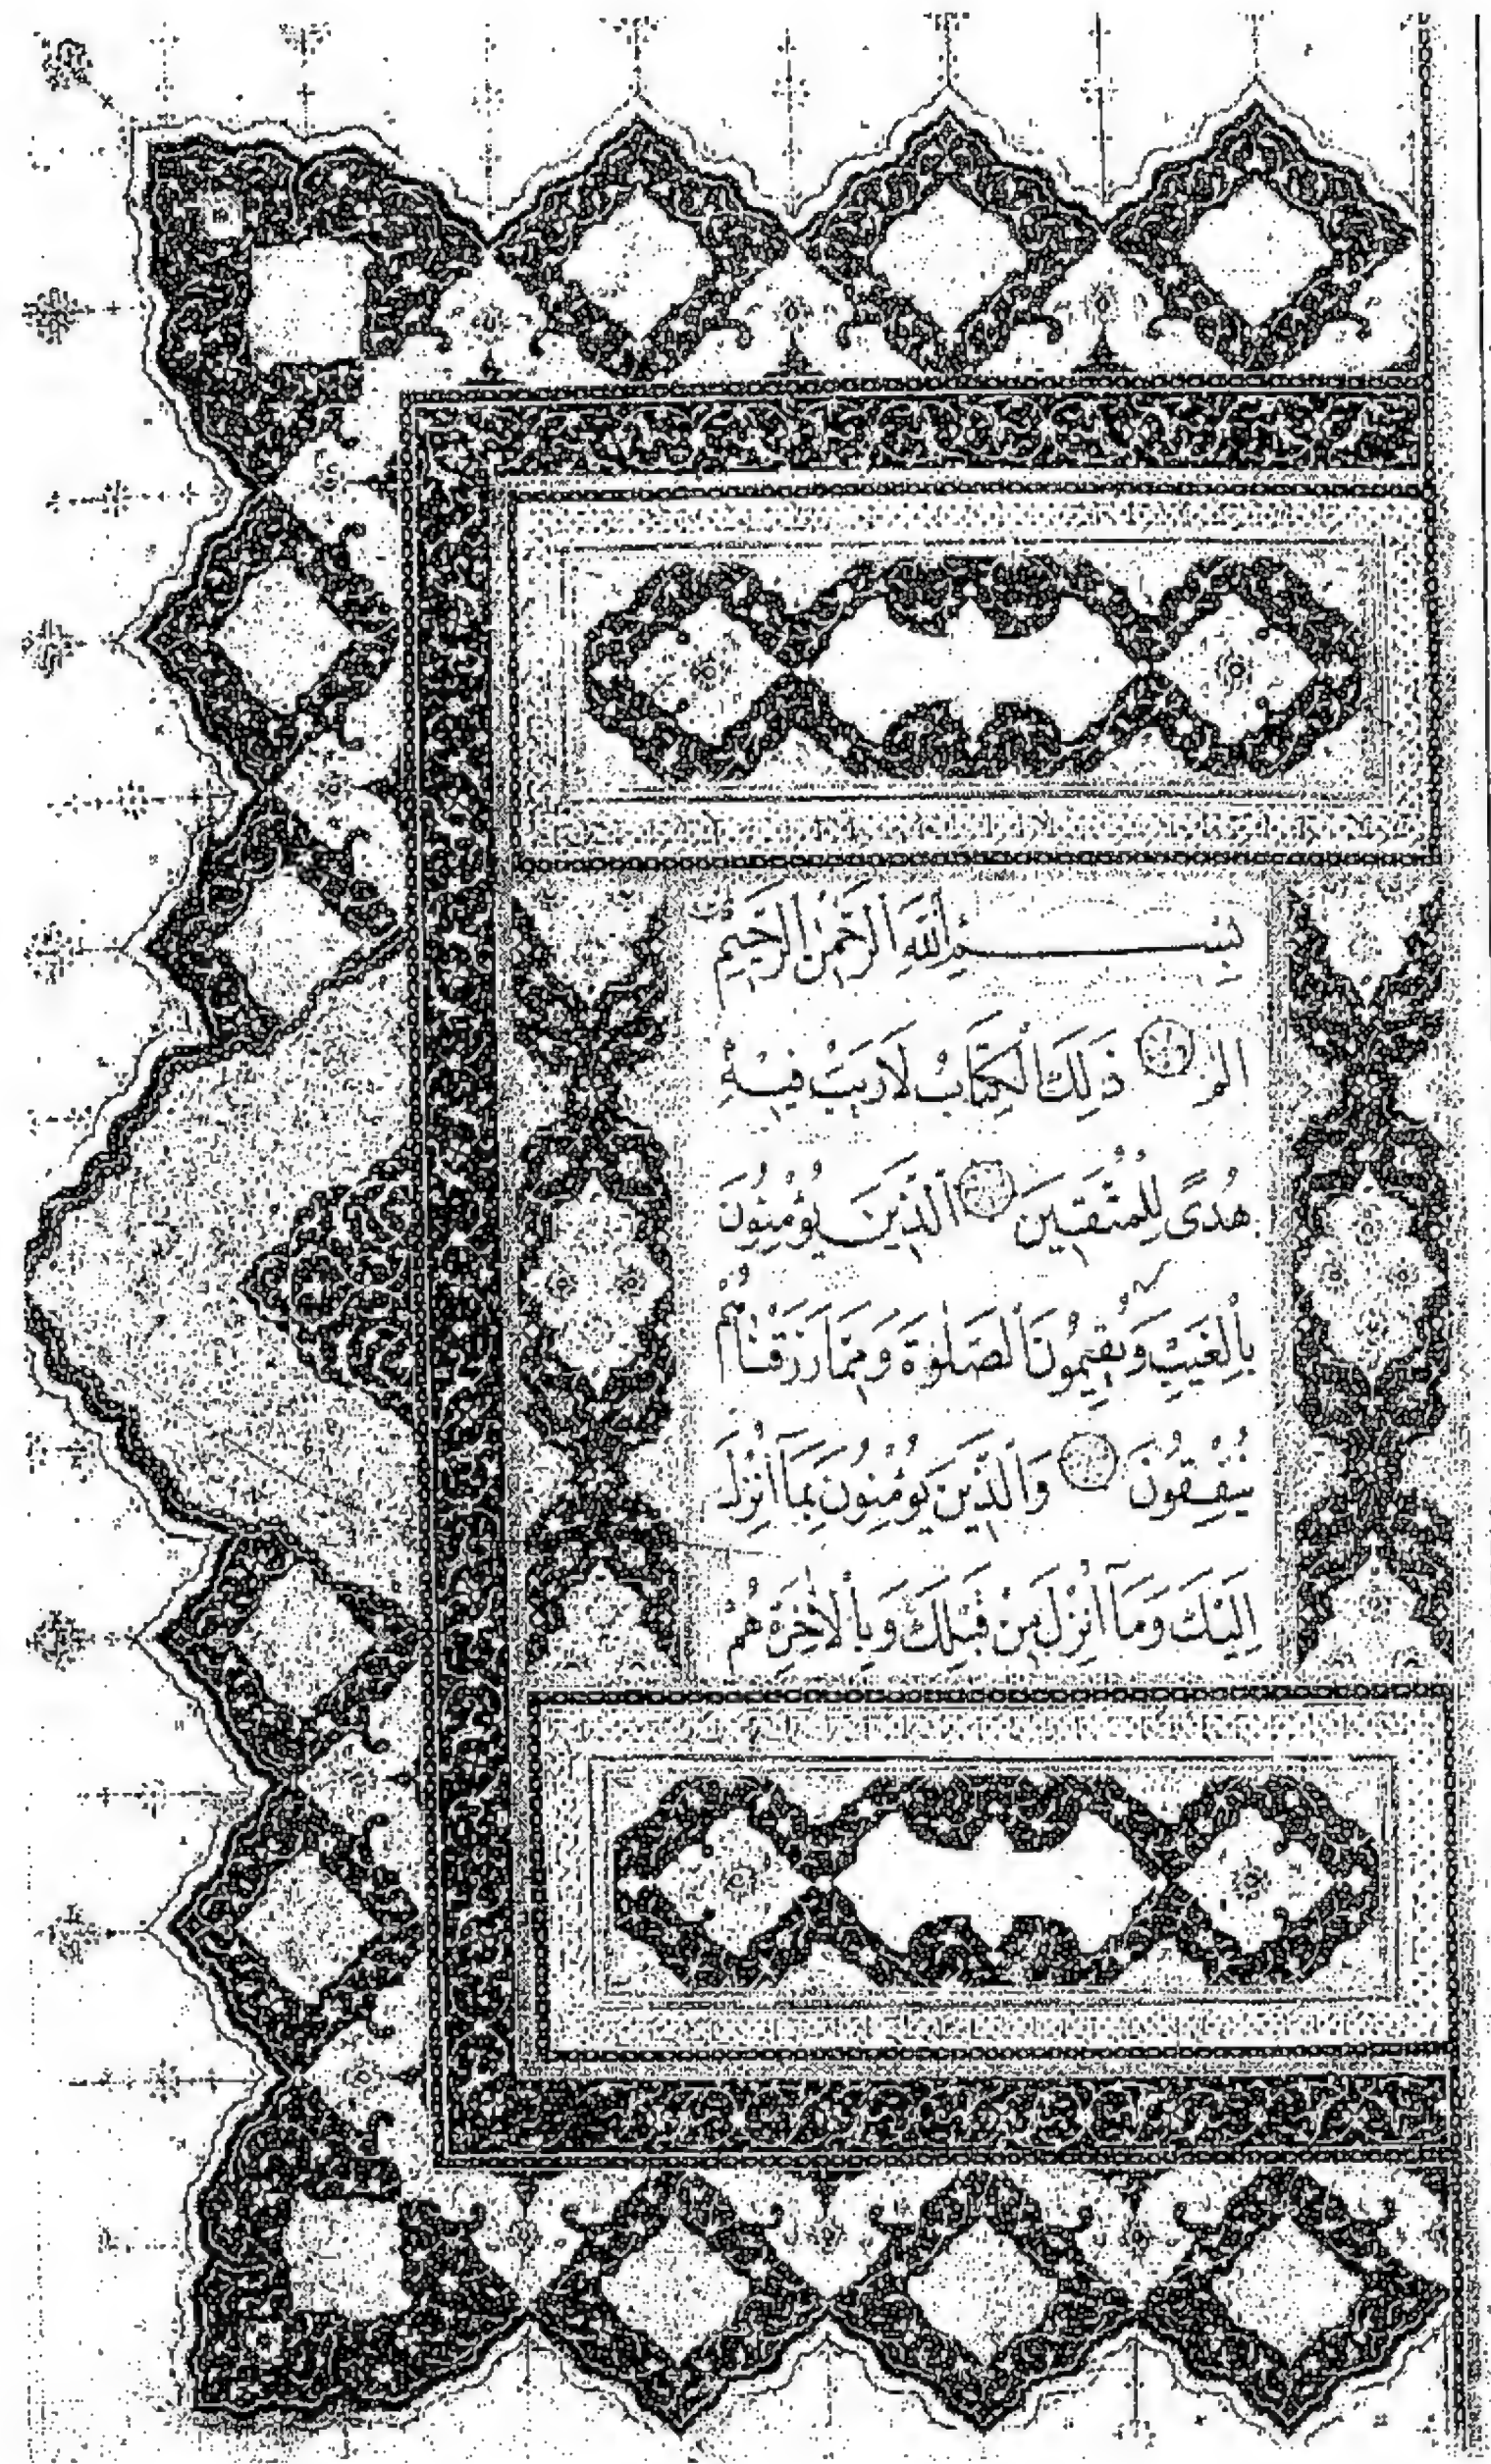 بِسْمِ اللّٰهِ الرَّحْمٰنِ الرَّحِيمِ
الم ذَلِكَ الْكِتَابُ لَا رَيْبَ فِيهِ
هُدًى لِلْمُتَّقِينَ الَّذِينَ يُؤْمِنُونَ
بِالْغَيْبِ وَيُقِيمُونَ الصَّلٰوةَ وَمِمَّا رَزَقْنَاهُمْ
يُنْفِقُونَ وَالَّذِينَ يُؤْمِنُونَ بِمَا أُنْزِلَ
إِلَيْكَ وَمَا أُنْزِلَ مِنْ قَبْلِكَ وَبِالْآخِرَةِ هُمْ